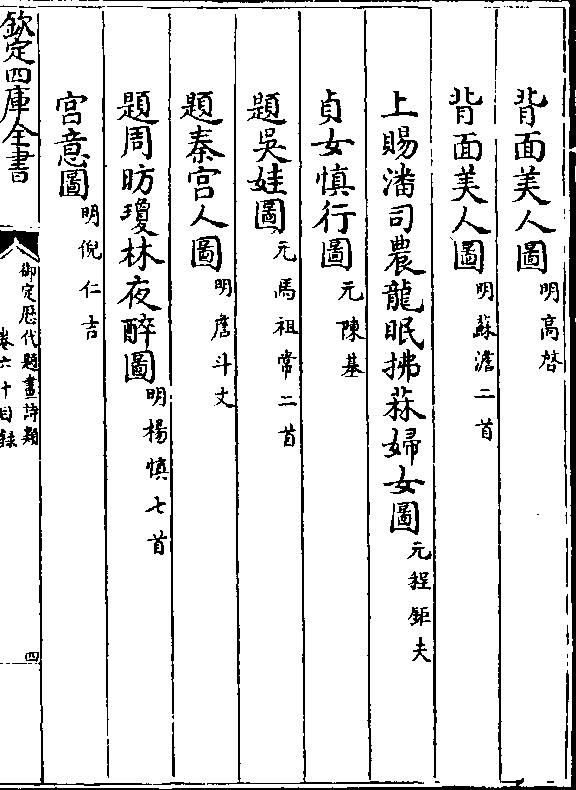 背面美人圖明高啓
背面美人圖明蘇澹二首
上賜潘司農龍眠拂菻婦女圖元程鉅夫
貞女慎行圖元陳基
題吳娃圖元馬祖常二首
題秦宮人圖明詹斗文
題周昉瓊林夜醉圖明楊慎七首
宮意圖明倪仁吉
欽定四庫全書
御定歷代題畫詩類
卷六十目錄
四